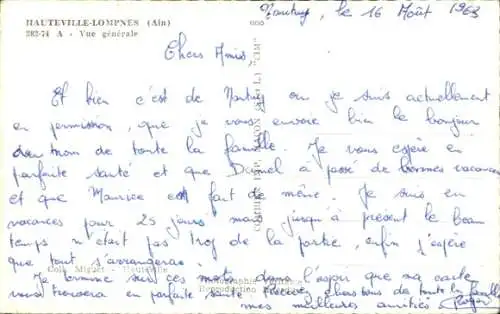 HAUTEVILLE-LOMPNES (Ain)
282-74 A - Vue générale
Nantuy, le 16 Août 1963
Chers Amis,
Et bien c'est de Nantuy ou je suis actuellement
en permission, que je vous envoie bien le bonjour
au nom de toute la famille. Je vous espère en
parfaite santé et que Daniel a passé de bonnes vacances
et que Maurice en fait de même. Je suis en
vacances pour 25 jours mais jusqu'à présent le beau
temps n'était pas trop de la partie, enfin j'espère
que tout s'arrangera.
Coll. Miguet - Hauteville
Je termine sur ces mots dans l'espoir que ma carte
vous trouvera en parfaite santé. Recevez chers tous de toute la famille
mes meilleures amitiés Roger
COMBIER IMP. MACON (S.-&-L.) "CIM"
Reproduction